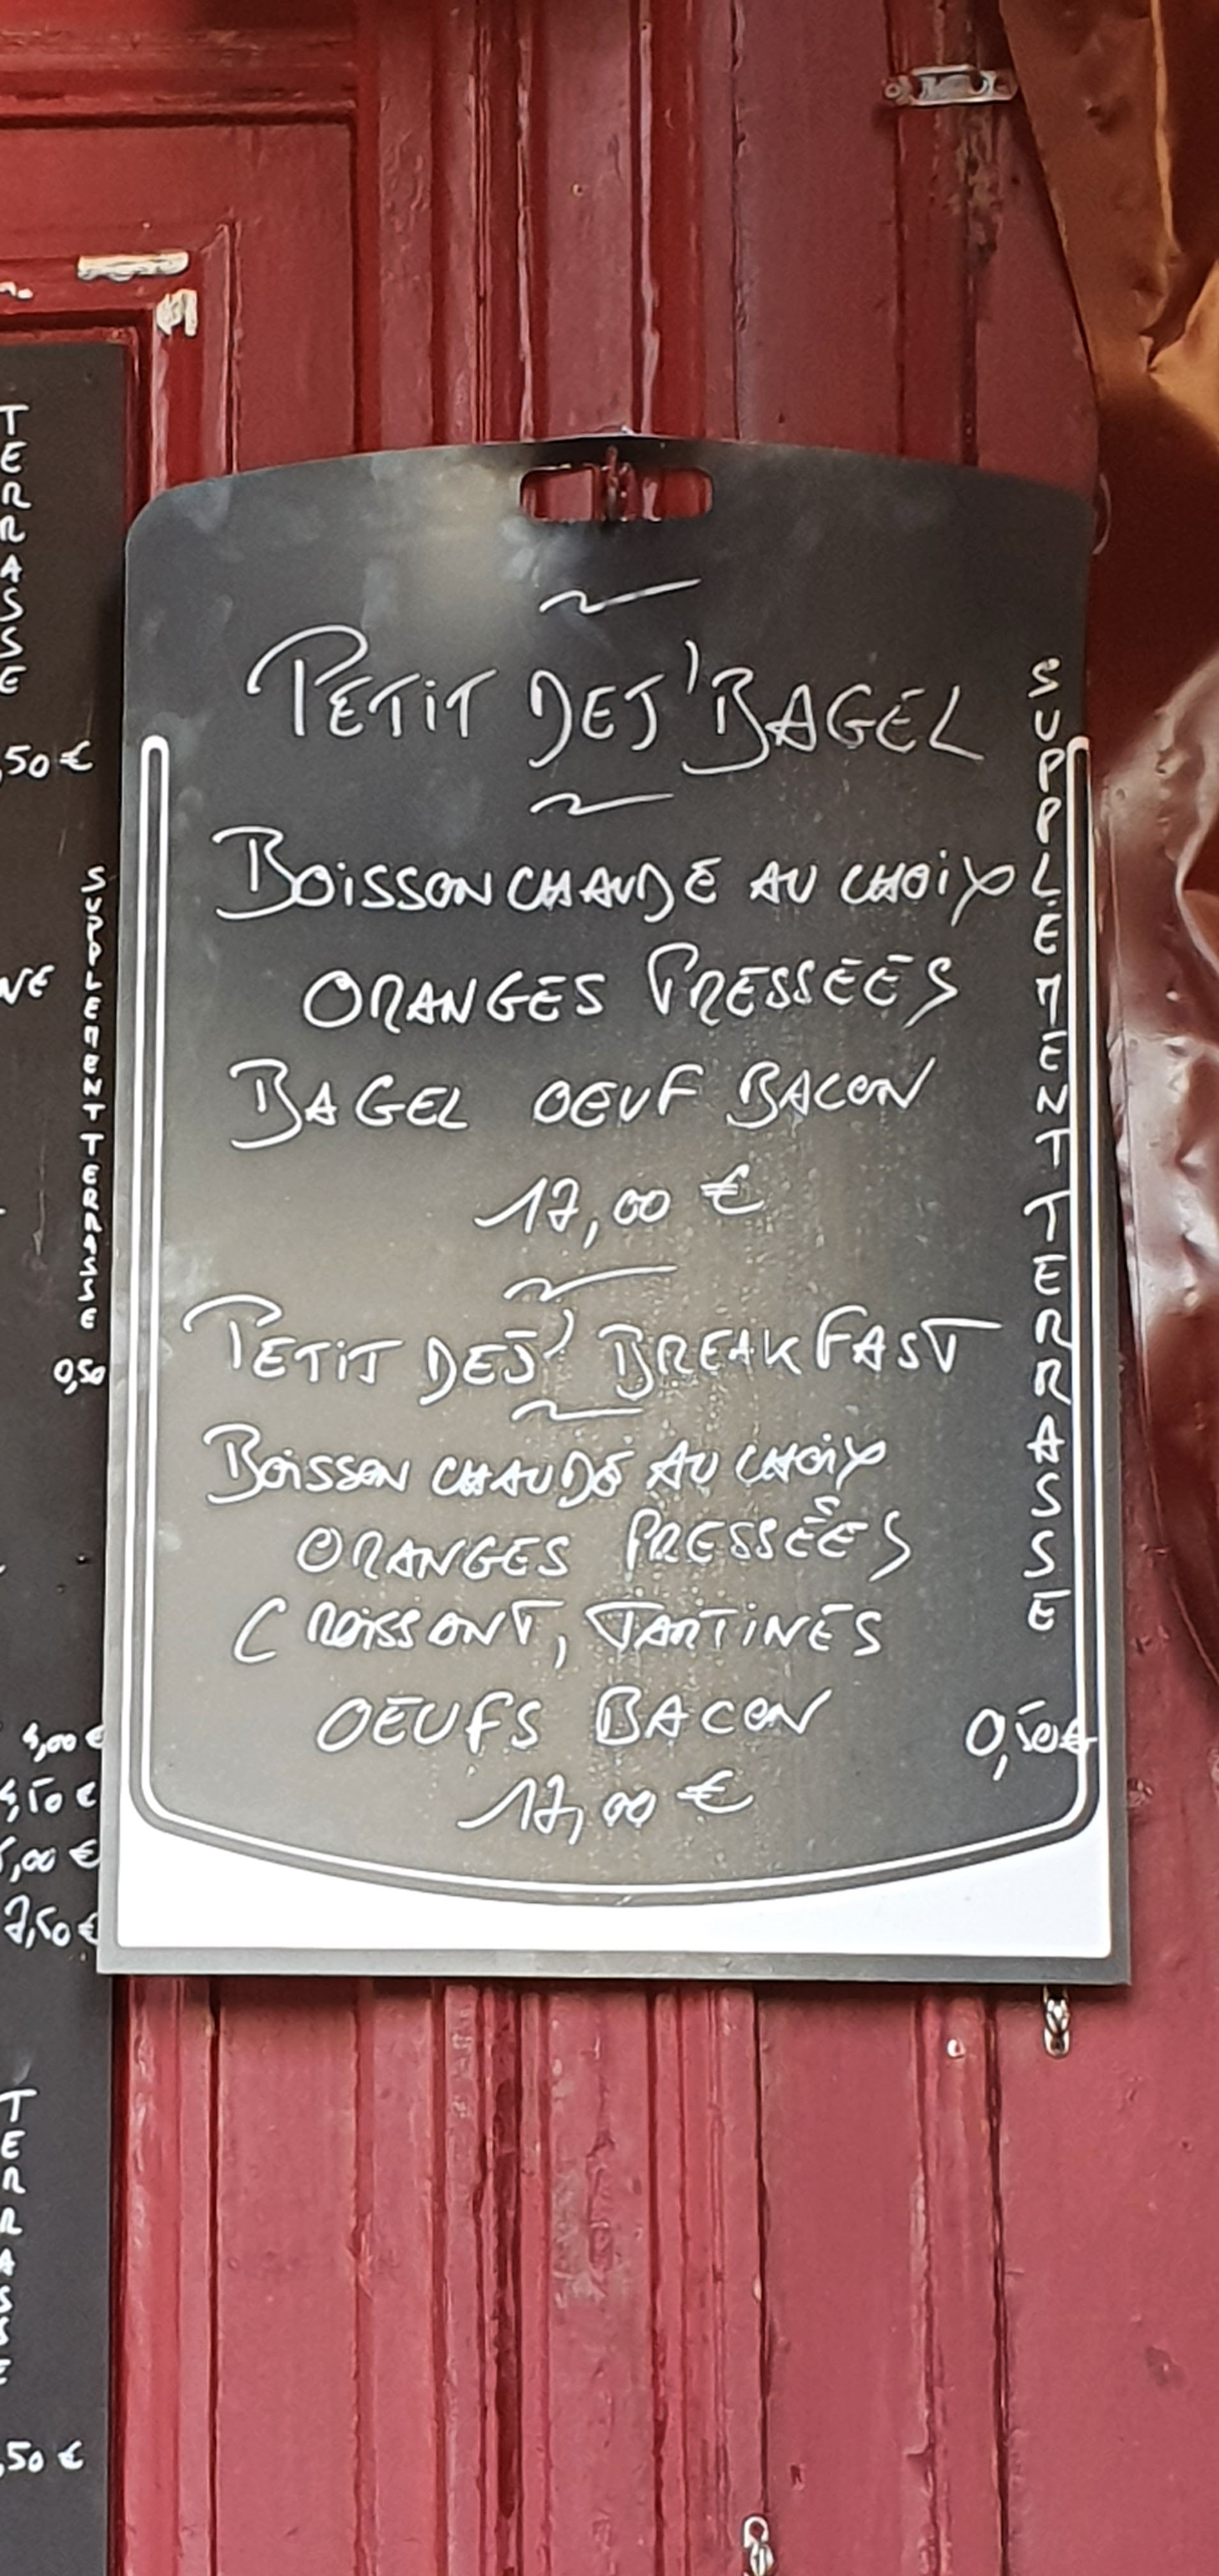 PETIT DEJ' BAGEL
BOISSON CHAUDE AU CHOIX
ORANGES PRESSEES
BAGEL OEUF BACON
17,00 €
PETIT DEJ' BREAKFAST
BOISSON CHAUDE AU CHOIX
ORANGES PRESSÉES
CROISSANT, TARTINES
OEUFS BACON
17,00 €
SUPPLEMENT TERRASSE
0,50€
TERRASSE
,50 €
SUPPLEMENT TERRASSE
0,50
4,00 €
,00 €
7,50 €
TERRASSE
,50 €